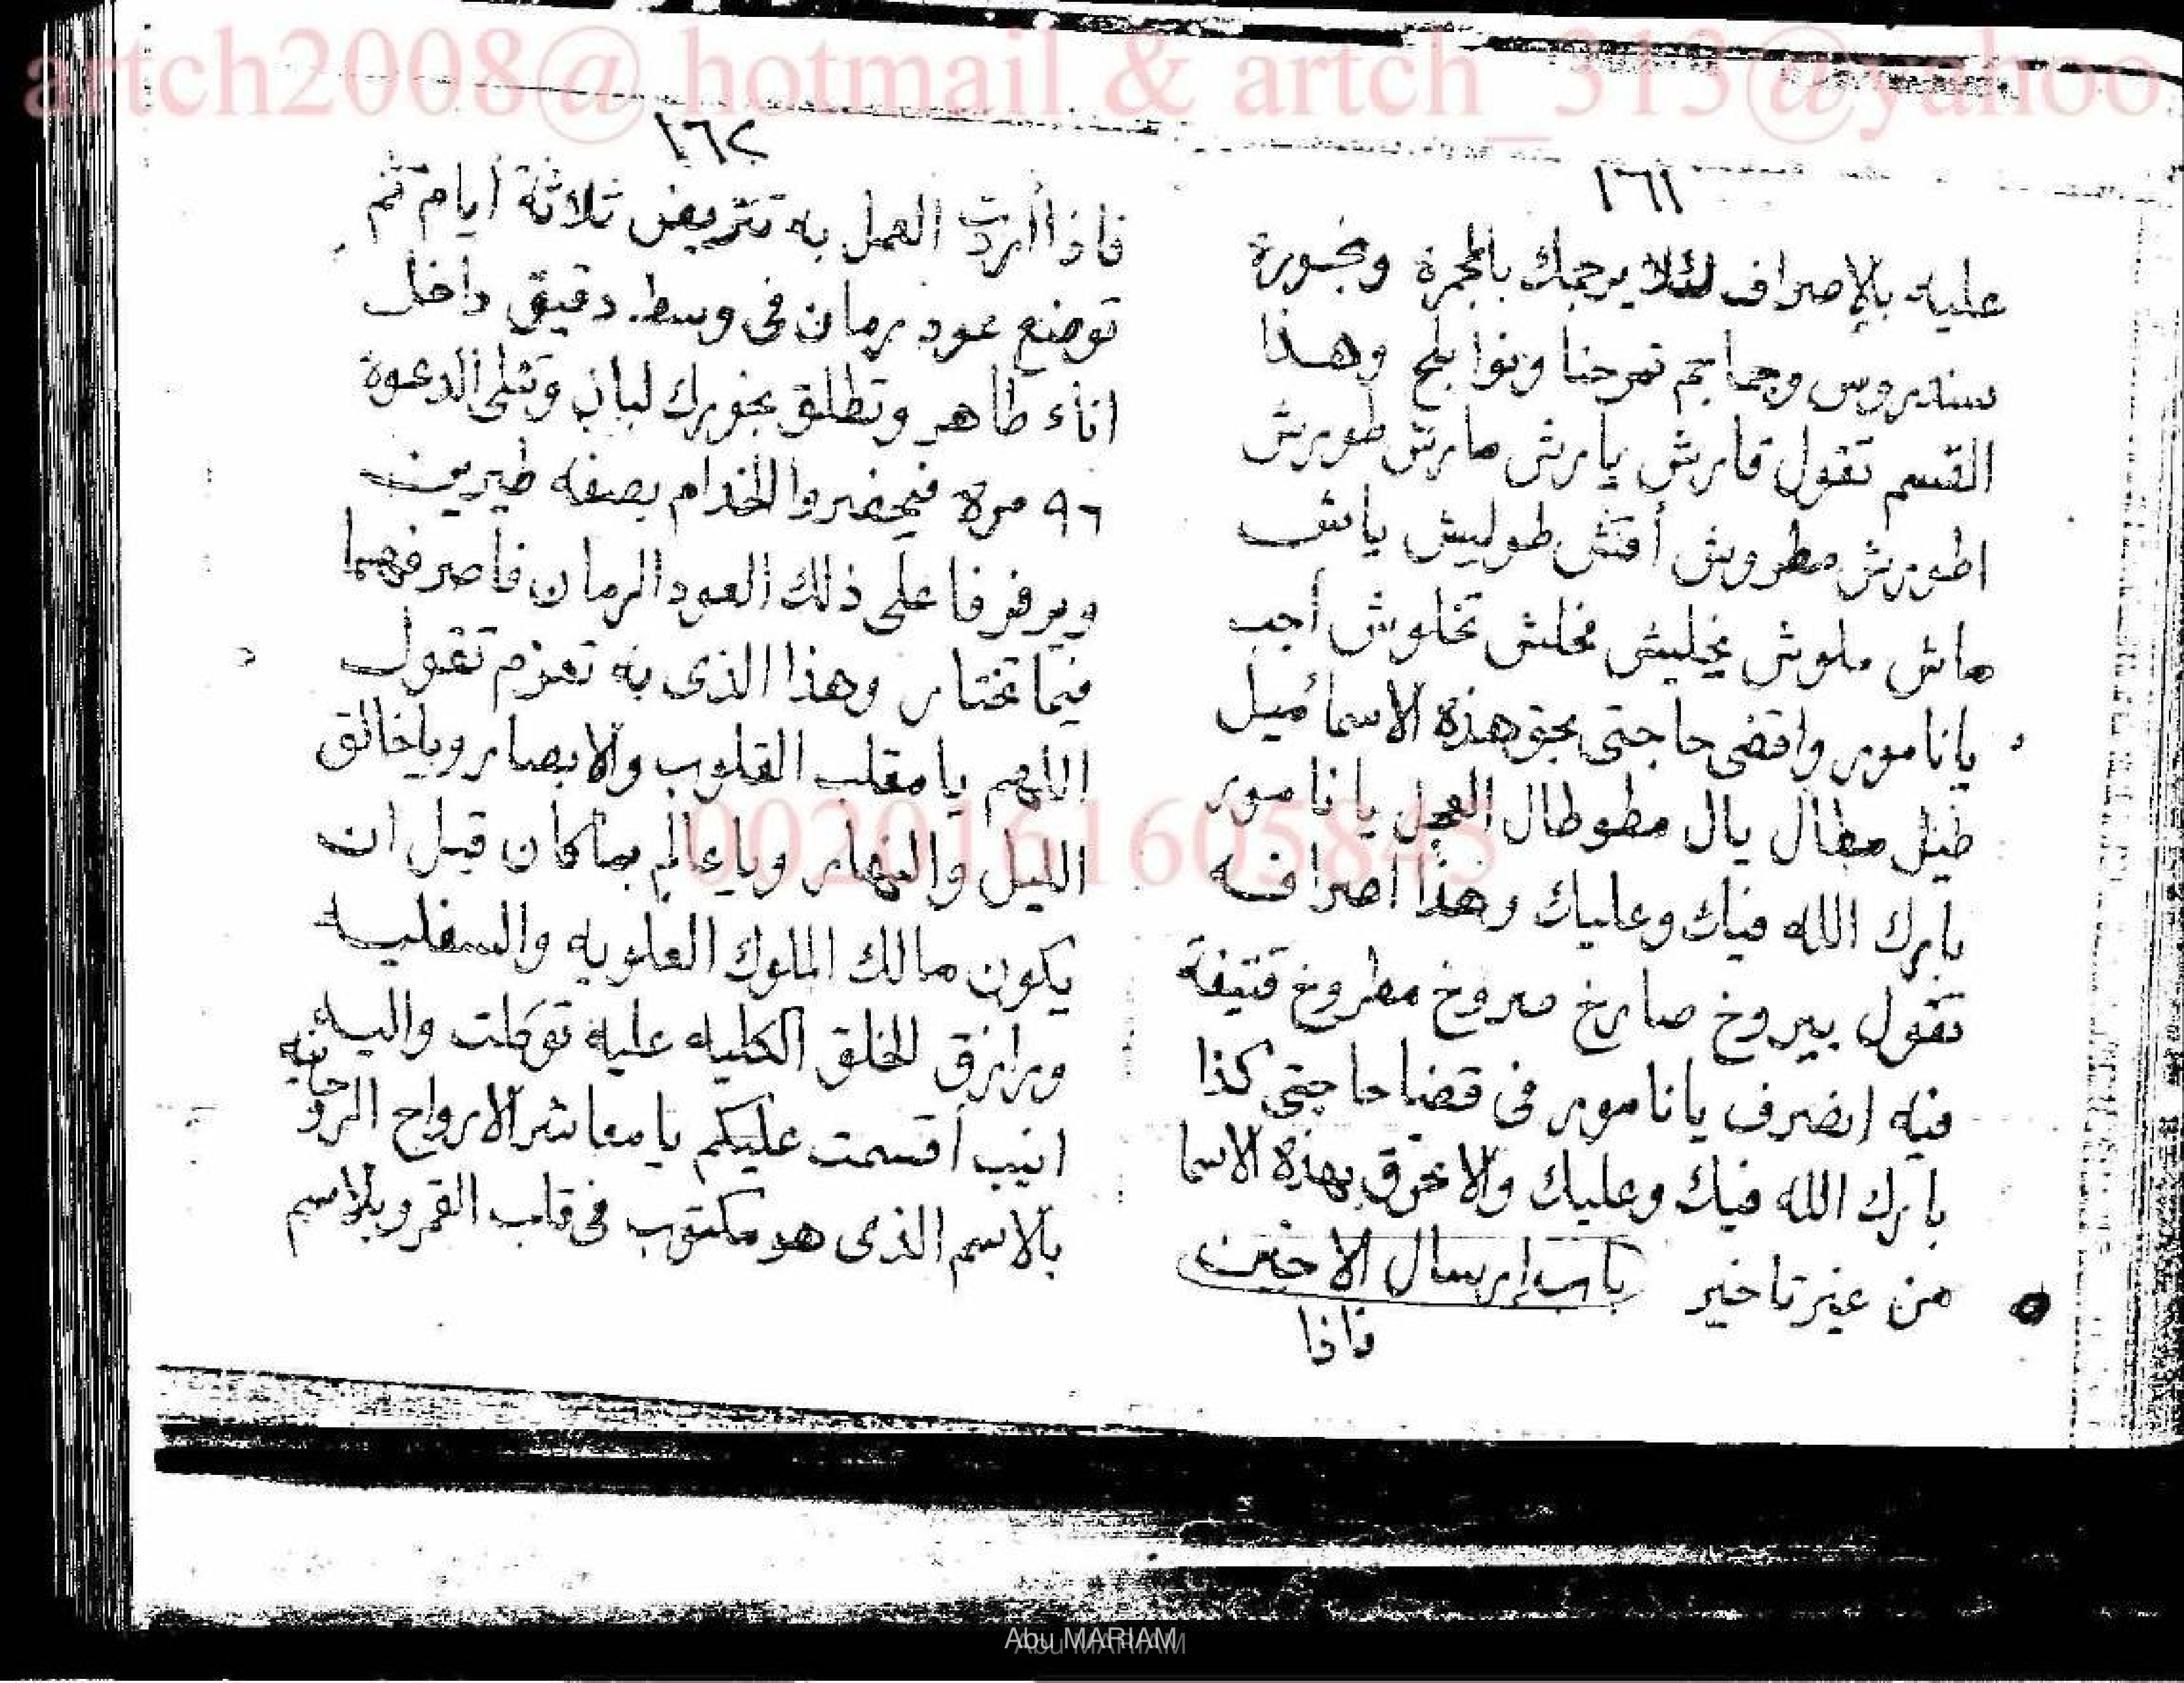 artch2008@ hotmail & artch_313@yahoo
١٦١
عليه بالإصراف لئلا يرجمك بالمجمرة وبخوره
سندروس وجماجم تمرحنا ونوا بلح وهذا
القسم تقول قارش يارش مارش طورش
اطورش مطروش أقش طوليش ياش
هاش ملوش يخليش مخلش تخلوش أجب
يانامور واقضى حاجتى بحق هذه الاسما ئميل
طيل مطال يال مطوطال العجل يا نامور
بارك الله فيك وعليك وهذا اصرافه
تقول بيروخ صارخ صروخ مطروخ قتيفة
فيه انصرف يانامور فى قضا حاجتى كذا
بارك الله فيك وعليك والاتحرق بهذه الاسما
من غير تاخير باب إرسال الاخين
فاذا
١٦٢
فاذا أردت العمل به تتريض ثلاثة أيام ثم
توضع عود رمان فى وسط دقيق داخل
اناء طاهر وتطلق بخورك لبان وتتلى الدعوة
٩٦ مرة فيحضروا الخدام بصفة طيرين
ويرفرفا على ذلك العود الرمان فأصرفهما
فيما تختار وهذا الذى به تعزم تقول
اللهم يا مقلب القلوب والابصار وياخالق
الليل والنهار وياعالم بماكان قبل ان
يكون مالك الملوك العلويه والسفليه
ورازق الخلق الكليه عليه توكلت واليه
انيب أقسمت عليكم يا معاشر الارواح الروحانيه
بالاسم الذى هو مكتوب فى قلب القمر وبالاسم
0020161605845
Abu MARIAM